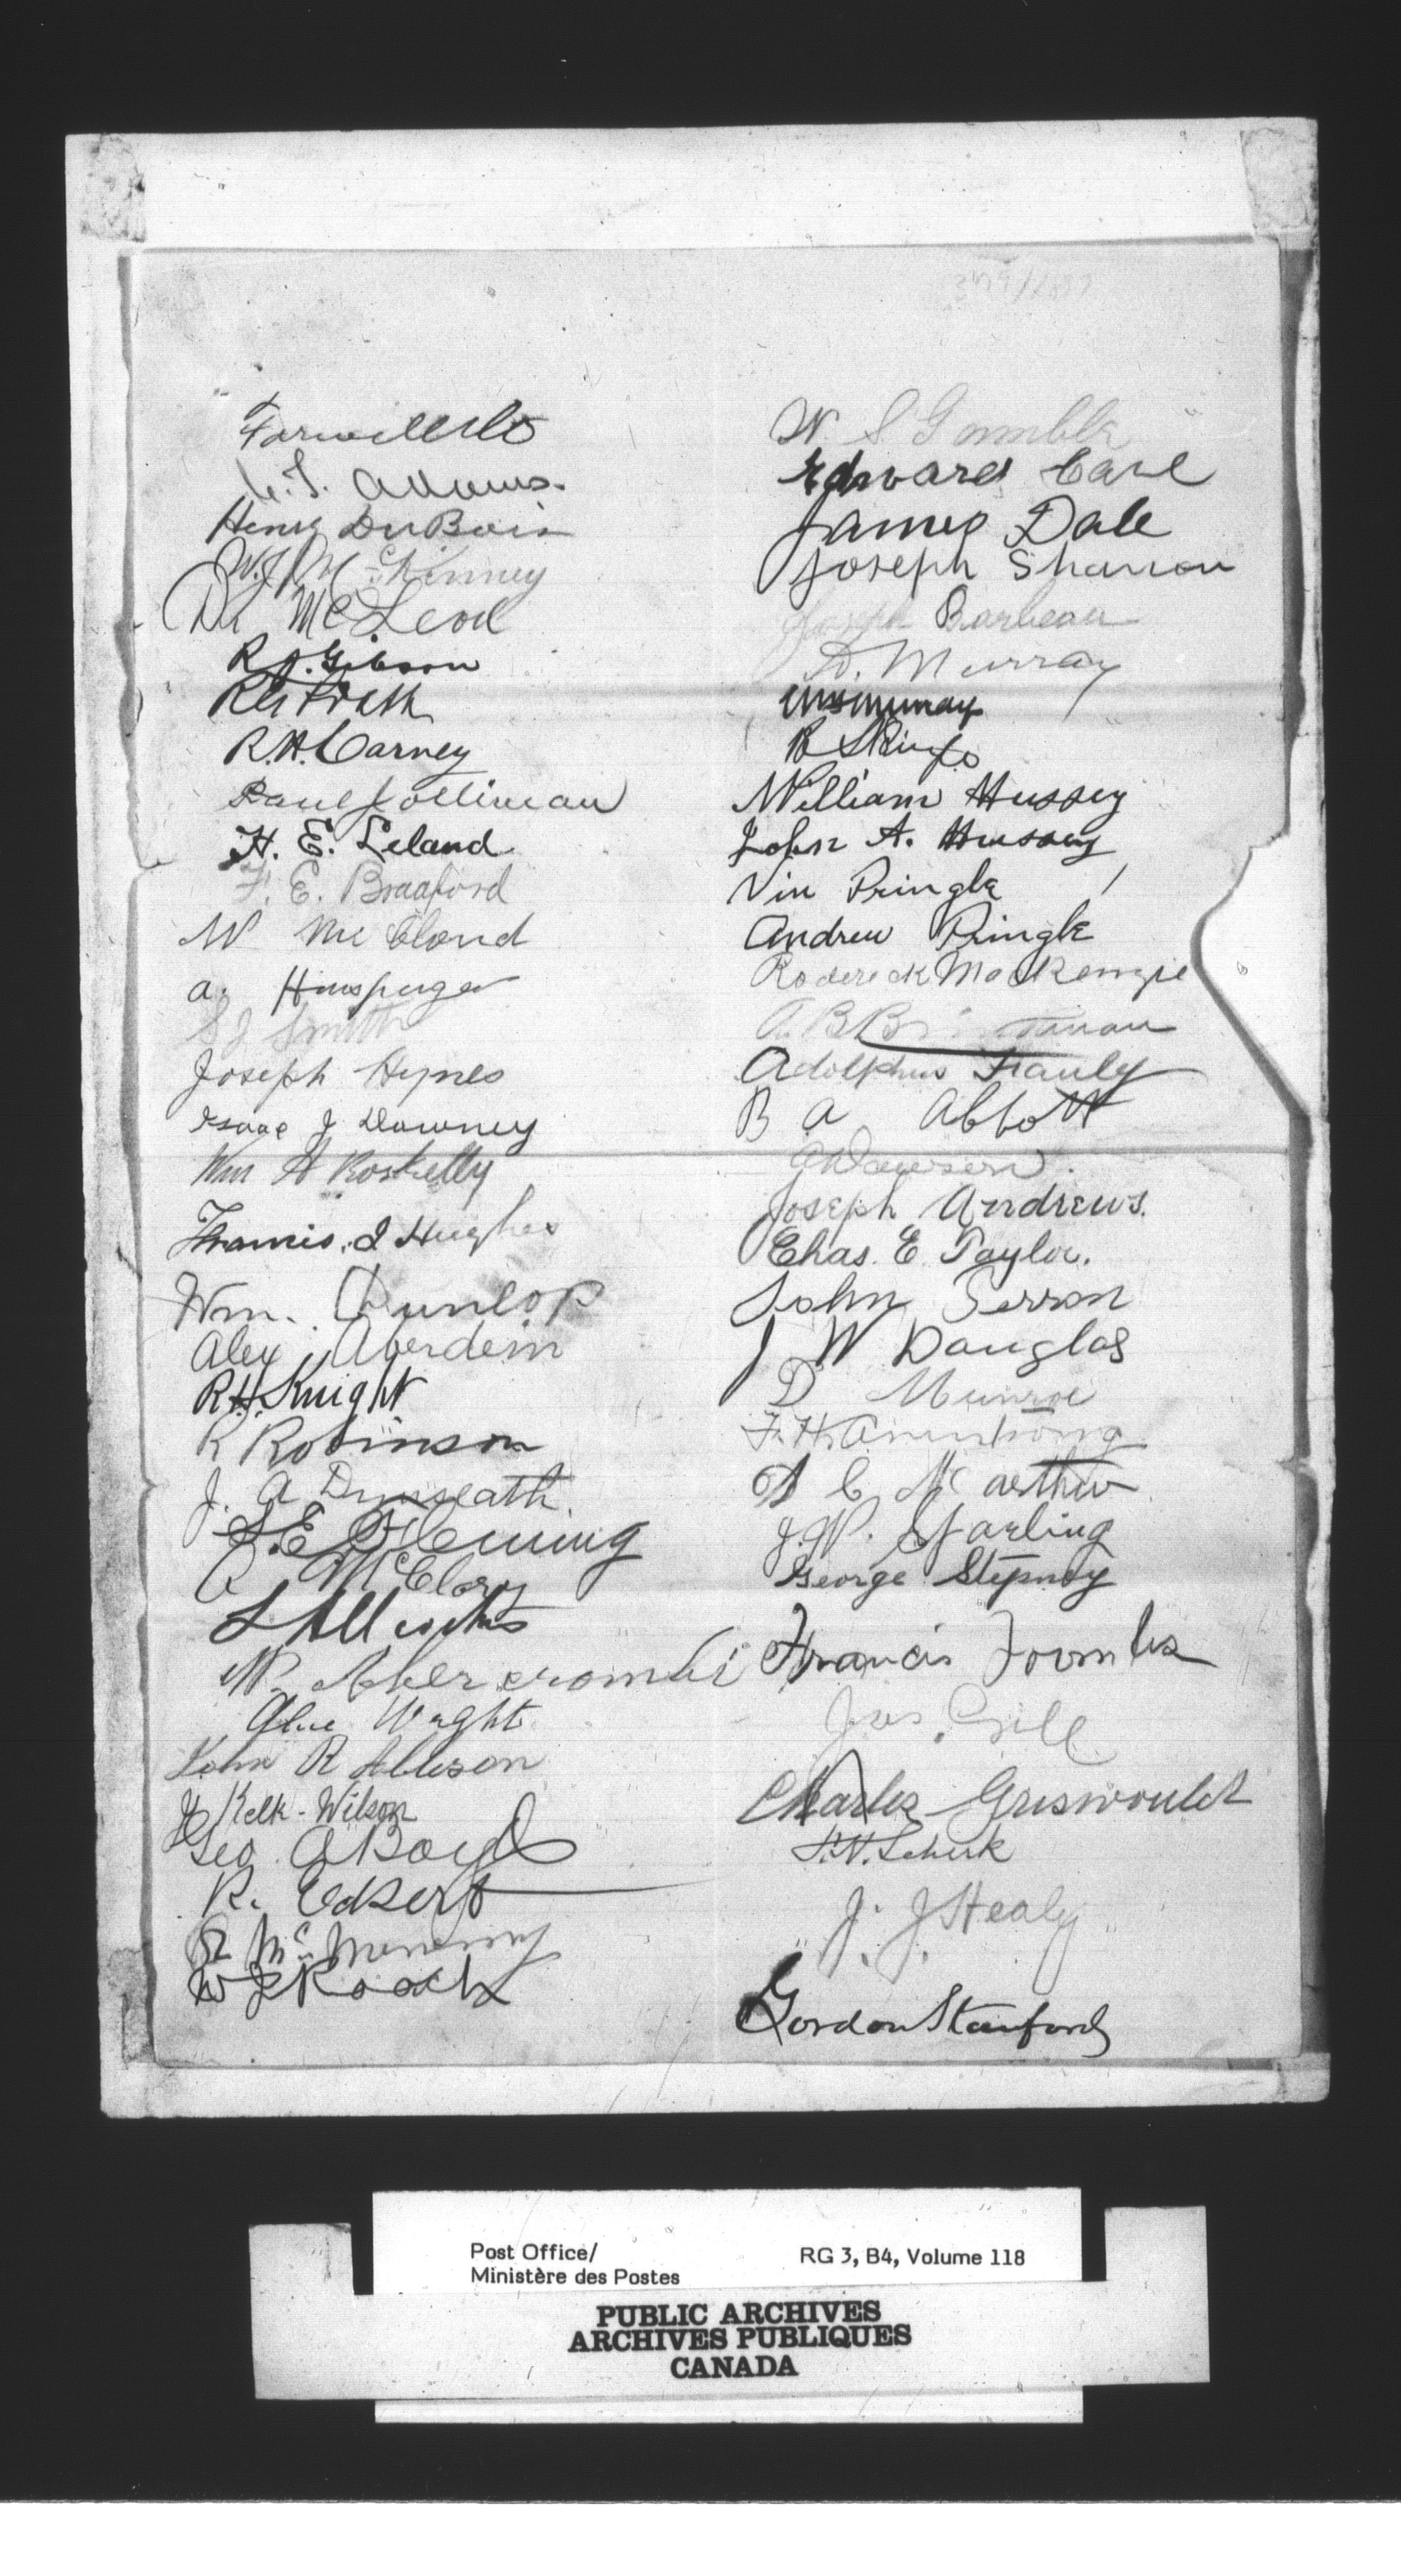 Adams.
Henry DuBois
W.J. McKinney
Dr McLeod
R. A. Gibson
R. H. Carney
Paul
H. E. Leland
F. E. Bradford
W McCloud
A.
S J Smith
Joseph Hynes
Isaac J Downey
Wm A Roskelly
Francis. J Hughes
Wm. Dunlop
Alex Aberdein
R. H. Knight
R Robinson
J. A Dunseath
S. E. Fleming
A McClory
W. Abercrombi
Wright
John R Allison
Kelk-Wilson
Geo A Boyd
R. Eckert
R McMenemy
W J Roach
W. S. Gamble
Edward Carl
James Dale
Joseph Shannon
Joseph Barbeau
D. Murray
William Hussey
John A. Hussey
Vin Pringle
Andrew Pringle
Roderick MacKenzie
A. B.
Adolphus
B A Abbott
Joseph Andrews.
Chas. E Taylor.
John
J W Douglas
D Munroe
F. H. Armstrong
C McArthur
J. W. Starling
George Stepney
Francis Toombs
Jas. Gill
Charles Griswould
Scherk
J. J Healy
Gordon Stanford
Post Office/
Ministère des Postes
RG 3, B4, Volume 118
PUBLIC ARCHIVES
ARCHIVES PUBLIQUES
CANADA